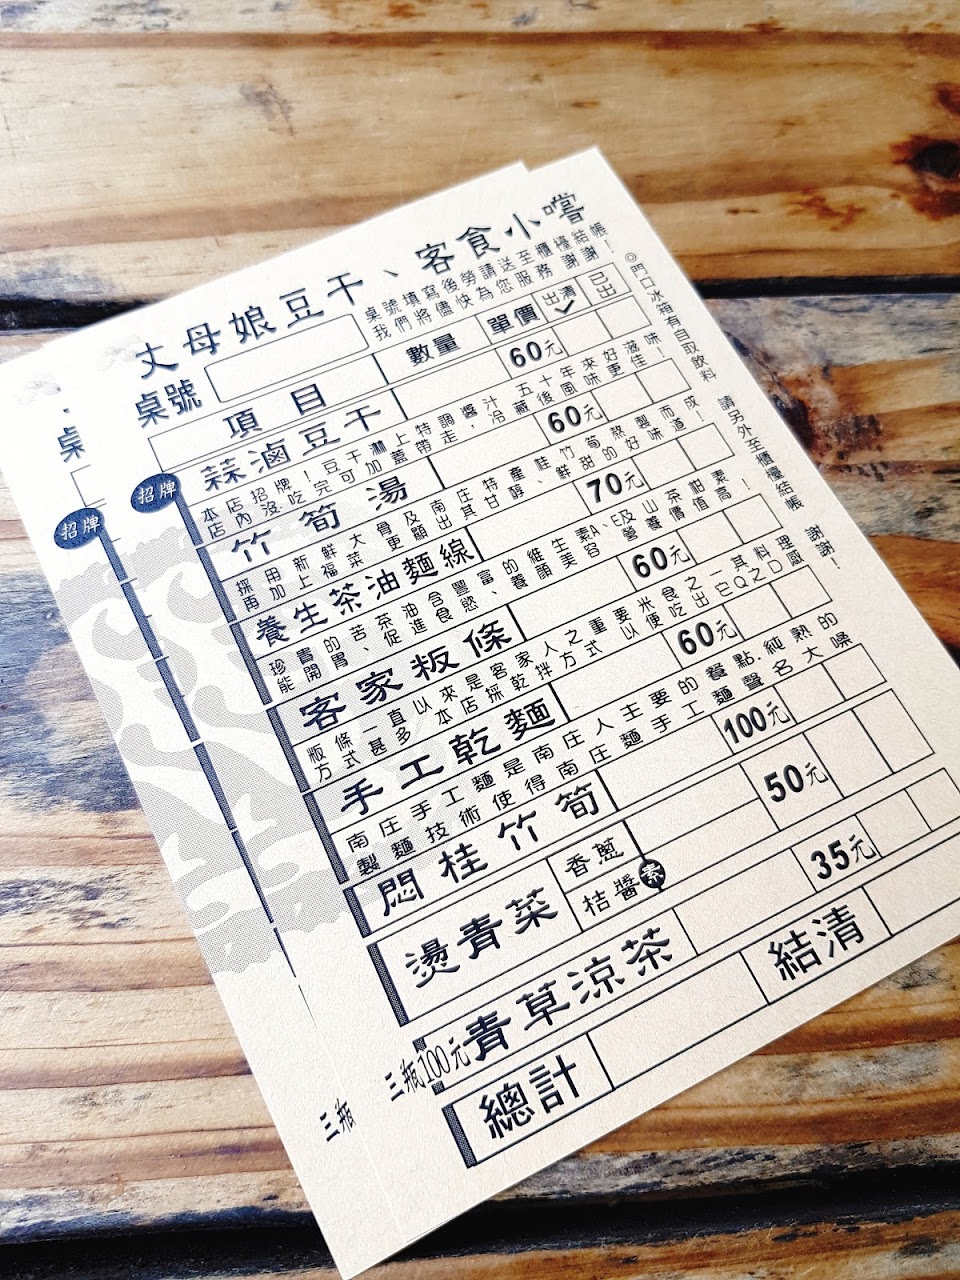 丈母娘豆干、客食小嚐
桌號
桌號填寫後勞請送至櫃檯結帳
我們將儘快為您服務 謝謝！
項目 數量 單價 出清 已出
招牌 蒜滷豆干 60元
本店招牌！豆干淋上特調醬汁 五十年來好滋味
店內沒吃完可加蓋帶走，冷藏後風味更佳！
竹筍湯 60元
採用新鮮大骨及南庄特產桂竹筍熬製而成
再加上福菜更顯出其甘醇、鮮甜的好味道！
養生茶油麵線 70元
珍貴的苦茶油含豐富的維生素A、E及山茶柑素
能開胃、促進食慾、養顏美容、營養價值高！
客家粄條 60元
粄條一直以來是客家人之重要米食之一其料理
方式甚多 本店採乾拌方式 以便吃出它QㄉQ感
手工乾麵 60元
南庄手工麵是南庄人主要的餐點.純熟的
製麵技術使得南庄手工麵聲名大噪
悶桂竹筍 100元
燙青菜 香蔥 50元
桔醬 素
三瓶100元 青草涼茶 35元
總計 結清
◎門口冰箱有自取飲料 請另外至櫃檯結帳 謝謝！
桌
招牌
三瓶